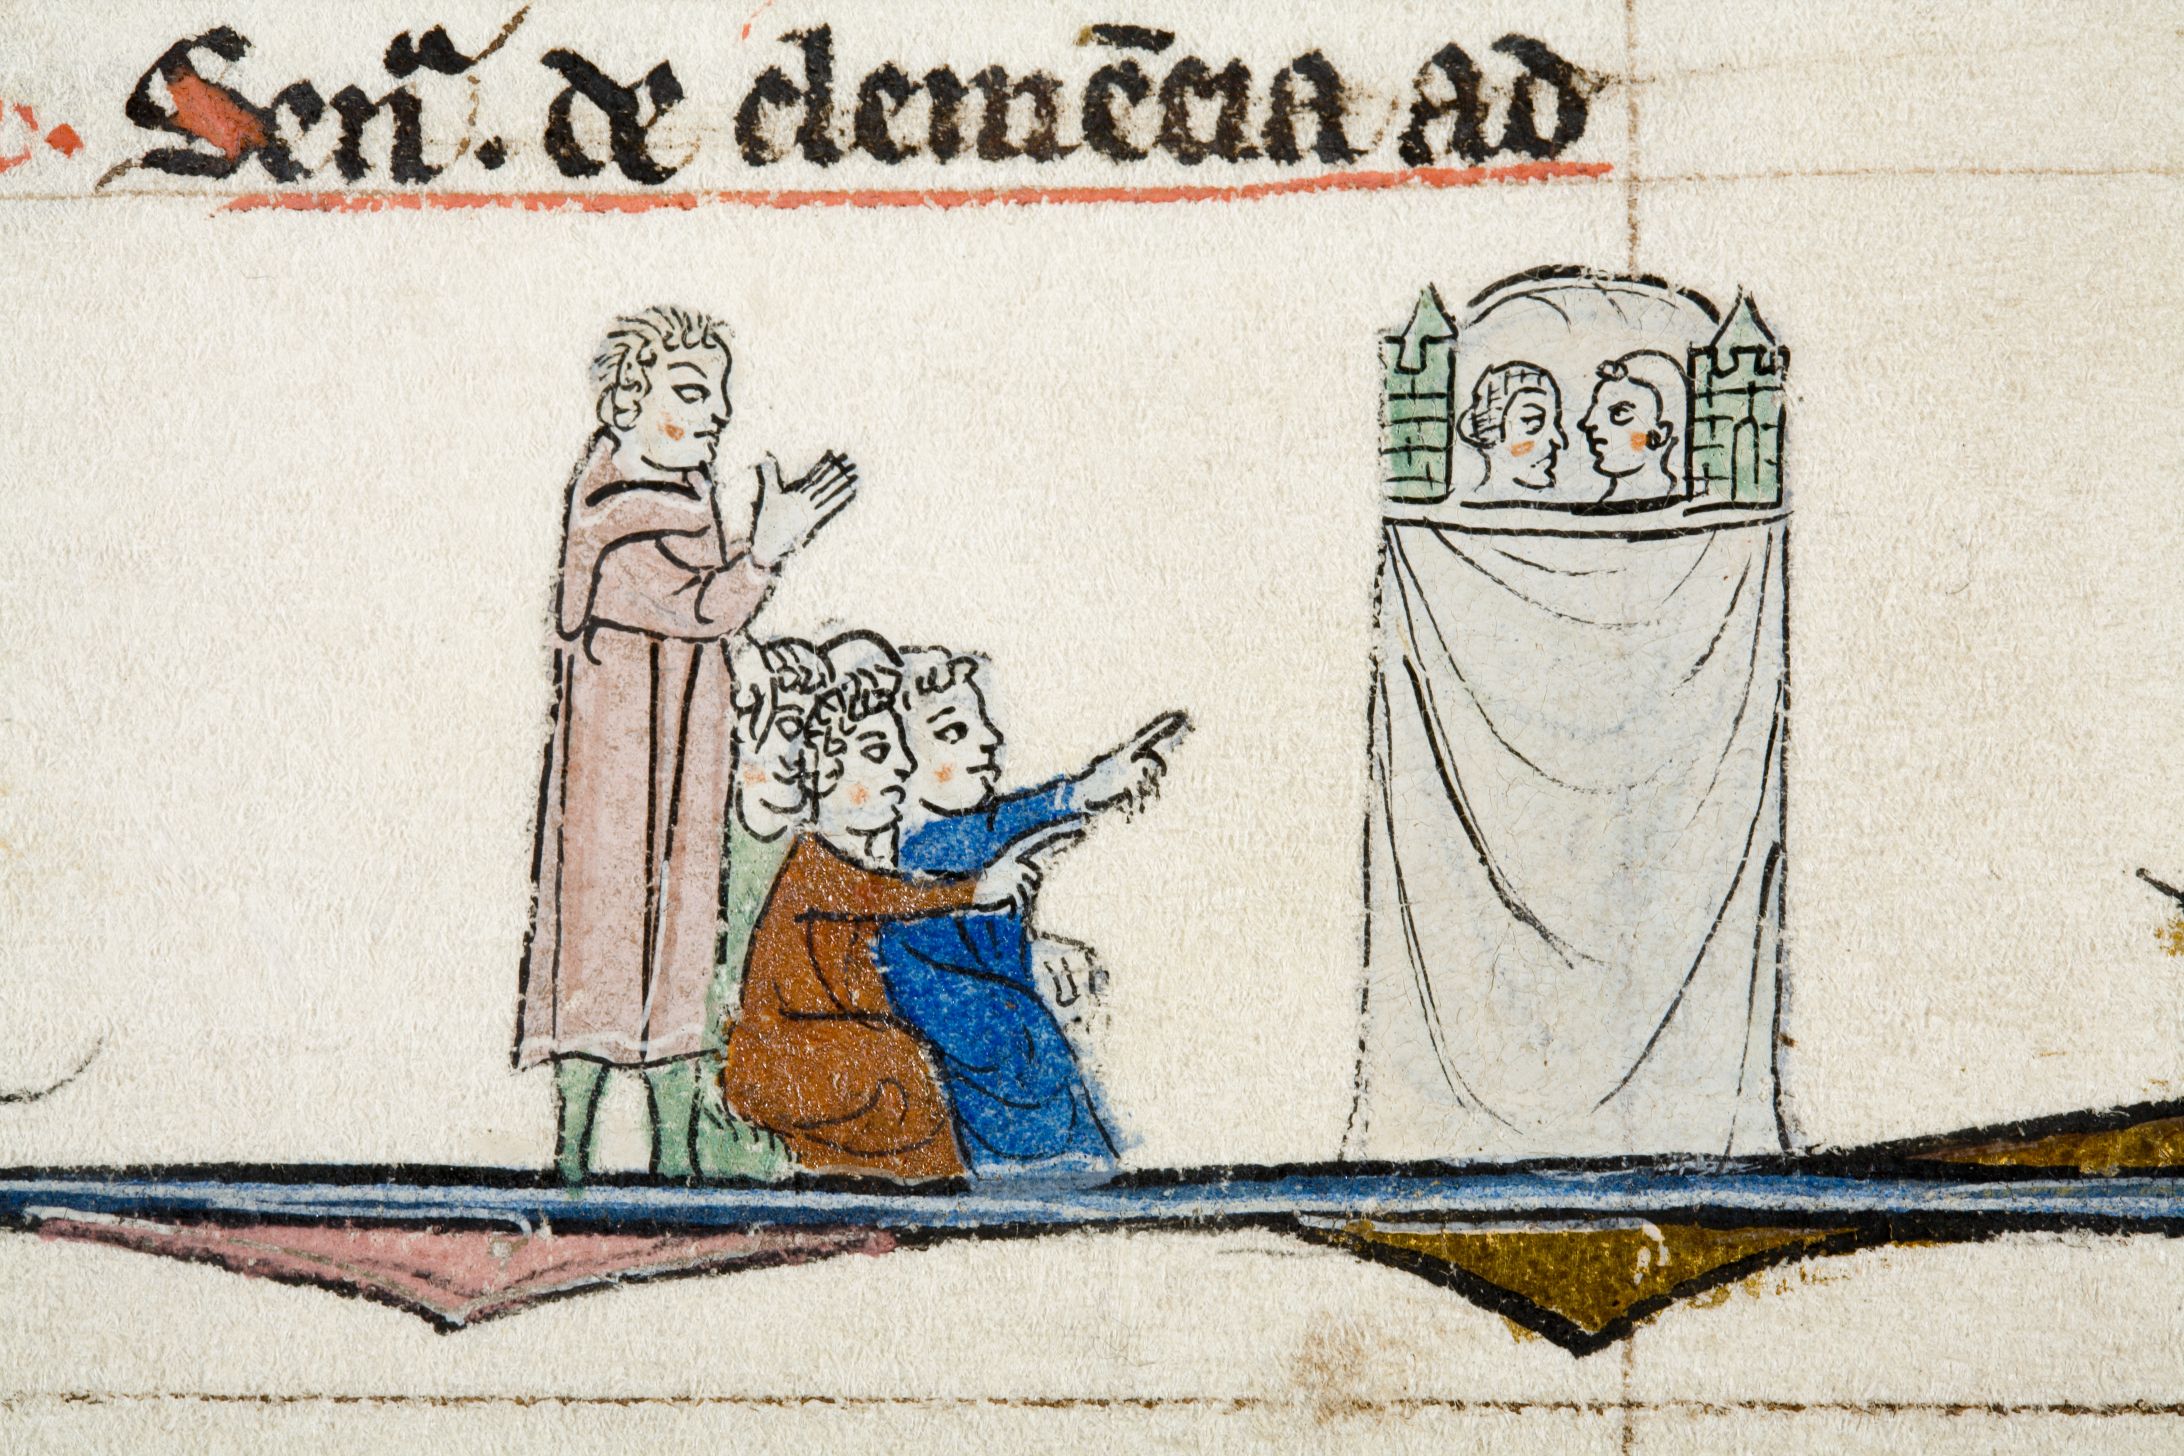 Señ. de clemēcia ad